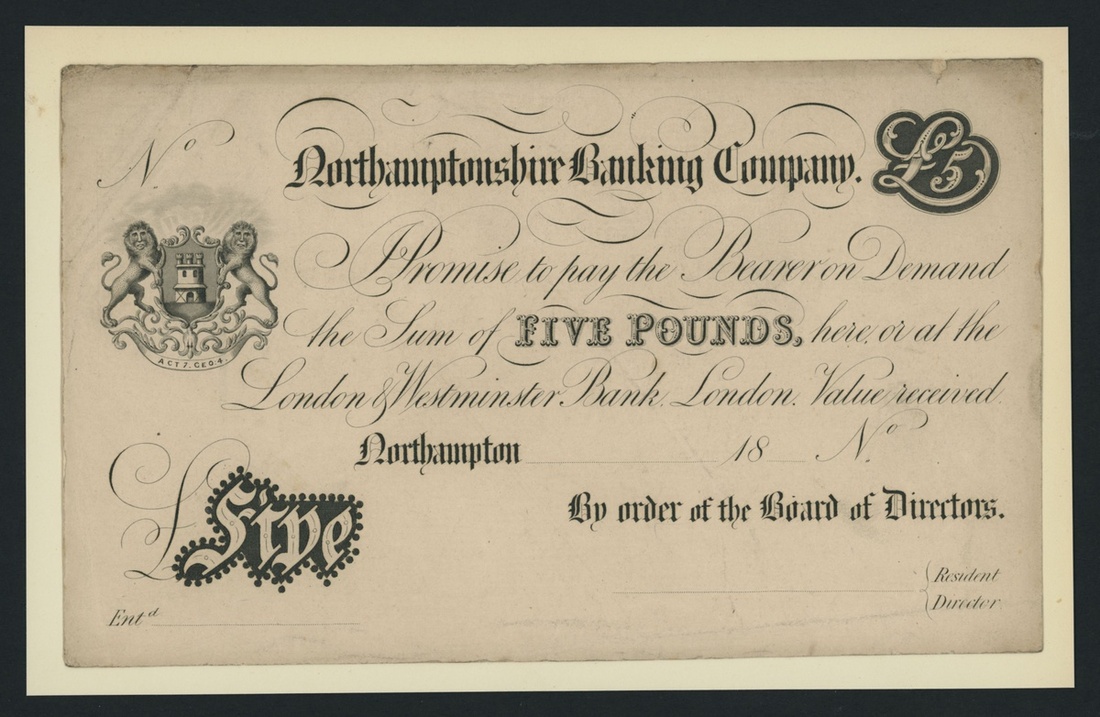 No
Northamptonshire Banking Company.
£5
I Promise to pay the Bearer on Demand
the Sum of FIVE POUNDS, here, or at the
London & Westminster Bank. London. Value received
ACT 7. GEO. 4.
Northampton 18 No
£ Five
By order of the Board of Directors.
Resident
Director
Entd